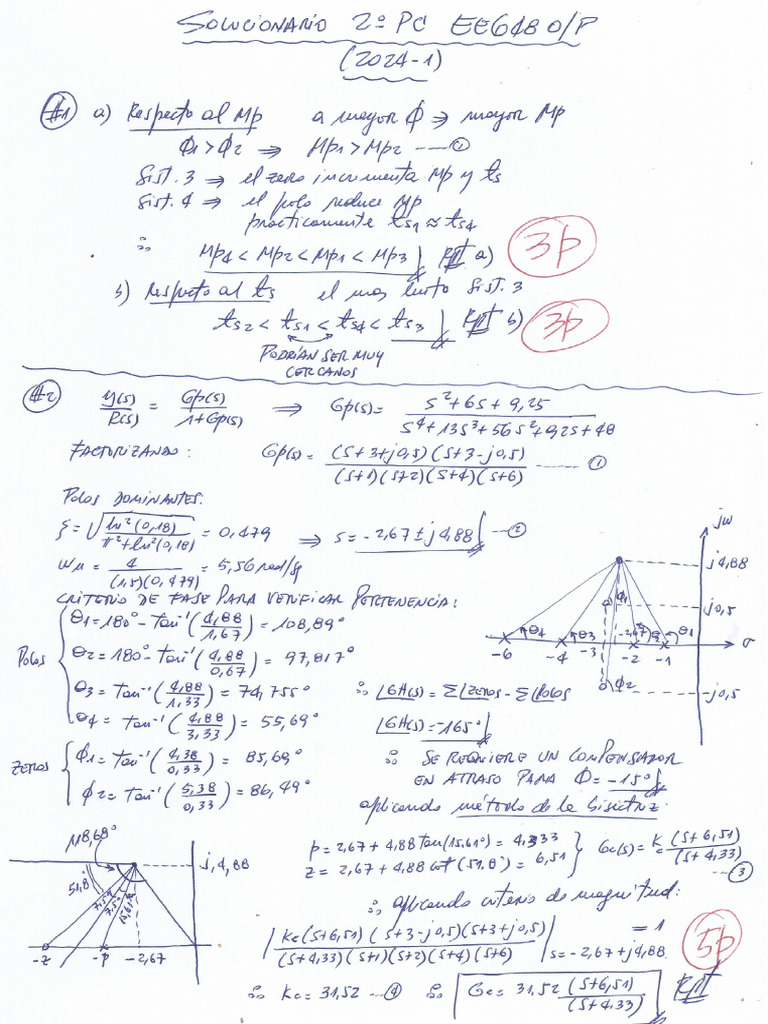 SOLUCIONARIO 2º PC EE618 O/P
(2024-1)
#1 a) Respecto al Mp a mayor ϕ ⇒ mayor Mp
ϕ1 > ϕ2 ⇒ Mp1 > Mp2 --- ①
Sist. 3 ⇒ el zero incrementa Mp y ts
Sist. 4 ⇒ el polo reduce Mp
prácticamente ts1 ≈ ts4
∴ Mp4 < Mp2 < Mp1 < Mp3 Rpt a)
3p
b) Respeto al ts el mas lento Sist. 3
ts2 < ts1 < ts4 < ts3 Rpt b)
3p
PODRÍAN SER MUY
CERCANOS
#2 y(s)/R(s) = Gp(s)/(1+Gp(s)) ⇒ Gp(s) = (s²+6s+9,25)/(s⁴+13s³+56s²+92s+48)
FACTORIZANDO: Gp(s) = (s+3+j0,5)(s+3-j0,5)/((s+1)(s+2)(s+4)(s+6)) --- ①
POLOS DOMINANTES:
ξ = √(ln²(0,18)/(π²+ln²(0,18))) = 0,479 ⇒ s = -2,67 ± j4,88 --- ②
wn = 4/((1,5)(0,479)) = 5,56 rad/sg
CRITERIO DE FASE PARA VERIFICAR PERTENENCIA:
POLOS
θ1 = 180° - tan⁻¹(4,88/1,67) = 108,89°
θ2 = 180° - tan⁻¹(4,88/0,67) = 97,817°
θ3 = tan⁻¹(4,88/1,33) = 74,755°
θ4 = tan⁻¹(4,88/3,33) = 55,69°
ZEROS
ϕ1 = tan⁻¹(4,38/0,33) = 85,69°
ϕ2 = tan⁻¹(5,38/0,33) = 86,49°
jw
j4,88
j0,5
σ
-j0,5
θ4 θ3 θ2 θ1
ϕ1
ϕ2
-6 -4 -3 -2,67 -2 -1
∴ ∠GH(s) = Σ∠zeros - Σ∠Polos
∠GH(s) = -165°
∴ SE REQUIERE UN COMPENSADOR
EN ATRASO PARA ϕ = -15°
aplicando método de la bisectriz:
118,68°
j,4,88
51,8°
7,5°
7,5°
15,61°
-z -p -2,67
p = 2,67 + 4,88 tan(15,61°) = 4,333
z = 2,67 + 4,88 cot(51,8) = 6,51
Gc(s) = Kc (s+6,51)/(s+4,33) --- ③
∴ aplicando criterio de magnitud:
|Kc(s+6,51)(s+3-j0,5)(s+3+j0,5)/((s+4,33)(s+1)(s+2)(s+4)(s+6))| s=-2,67+j4,88 = 1
5p
∴ Kc = 31,52 --- ④ ∴ Gc = 31.52 (s+6,51)/(s+4.33) Rpt